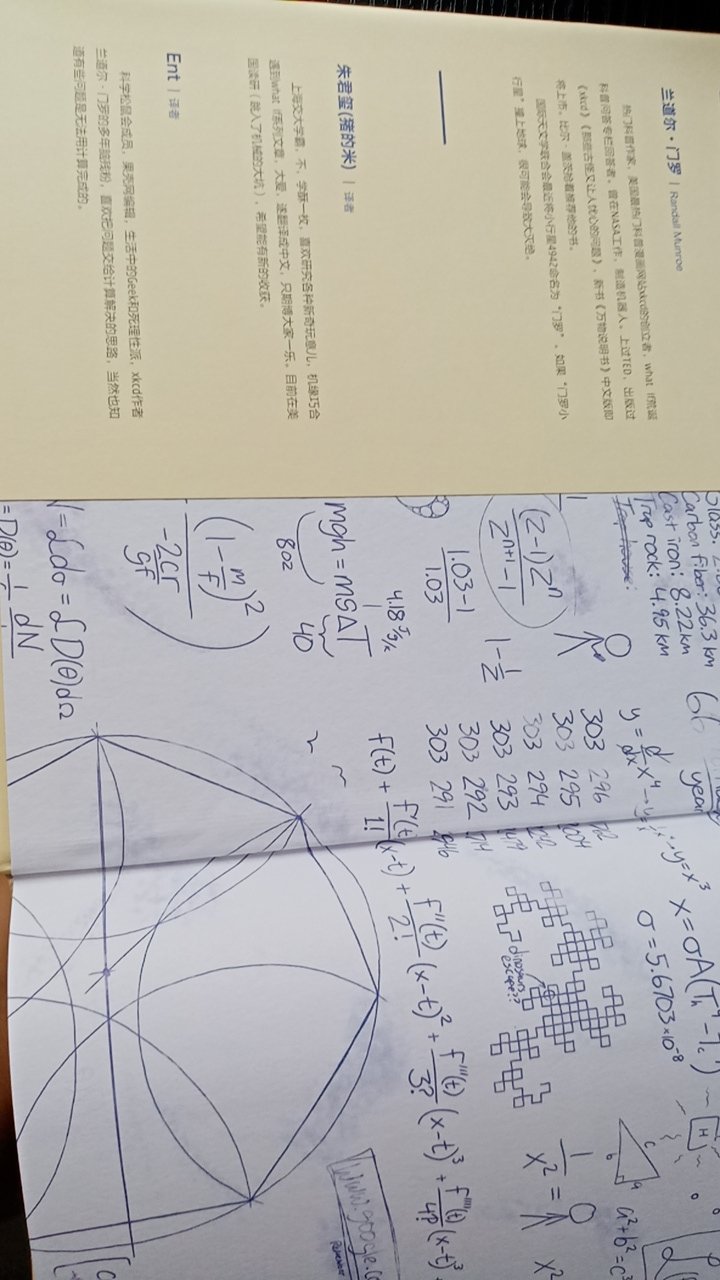 兰道尔·门罗 | Randall Munroe
热门科普作家，美国最热门科普漫画网站xkcd的创立者，what if荒诞
科普问答专栏回答者。曾在NASA工作，制造机器人。上过TED，出版过
《xkcd》《那些古怪又让人忧心的问题》，新书《万物说明书》中文版即
将上市。比尔·盖茨抢着推荐他的书。
国际天文学联合会最近将小行星4942命名为“门罗”，如果“门罗小
行星”撞上地球，很可能会导致大灭绝。
朱君玺(猪的米) | 译者
上海交大学霸，不，学酥一枚，喜欢研究各种新奇玩意儿，机缘巧合
遇到what if系列文章，大爱，遂翻译成中文，只期博大家一乐。目前在美
国读研（跳入了机械的大坑），希望能有新的收获。
Ent | 译者
科学松鼠会成员，果壳网编辑，生活中的Geek和死理性派，xkcd作者
兰道尔·门罗的多年脑残粉，喜欢把问题交给计算解决的思路，当然也知
道有些问题是无法用计算完成的。
Carbon Fiber: 36.3 km
Cast iron: 8.22 km
Trap rock: 4.95 km
66
year
y = d/dx x⁴ →
y = x³
x = σA(
σ = 5.6703×10⁻⁸
H
a² + b² = c
(z-1)zⁿ / zⁿ⁺¹-1
1.03-1 / 1.03
1 - 1/z
303 296
303 295
303 294
303 293
303 292
303 291
dinosaurs
escape??
1/x² =
x²
4.18 J/g/K
mgh = msΔT
802
40
f(t) + f'(t)/1! (x-t) + f''(t)/2! (x-t)² + f'''(t)/3? (x-t)³ + f''''(t)/4? (x-t)³
(1 - m/F)²
-2cr / gF
www.google.co
= £dσ = £D(θ)dΩ
= D(θ) = dN